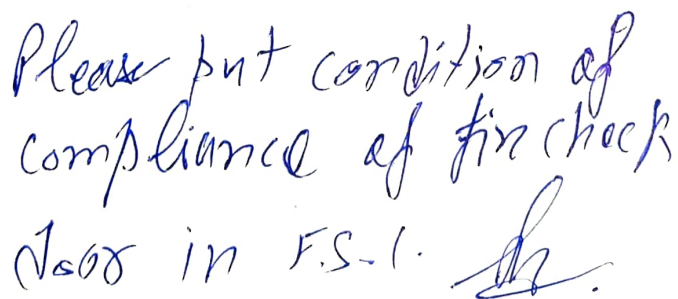 Please put condition of
compliance of fire check
door in F.S.I.